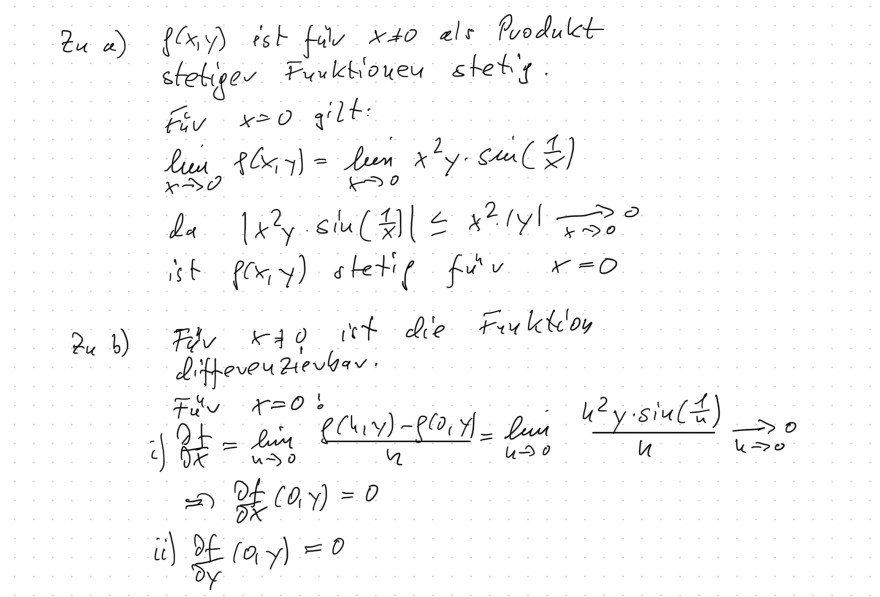 Zu a) f(x,y) ist für x≠0 als Produkt
stetiger Funktionen stetig.
Für x=0 gilt:
lim_{x→0} f(x,y) = lim_{x→0} x²y · sin(1/x)
da |x²y · sin(1/x)| ≤ x²·|y| →_{x→0} 0
ist f(x,y) stetig für x=0
Zu b) Für x≠0 ist die Funktion
differenzierbar.
Für x=0:
i) ∂f/∂x = lim_{h→0} (f(h,y)-f(0,y))/h = lim_{h→0} (h²y·sin(1/h))/h →_{h→0} 0
⇒ ∂f/∂x (0,y) = 0
ii) ∂f/∂y (0,y) = 0